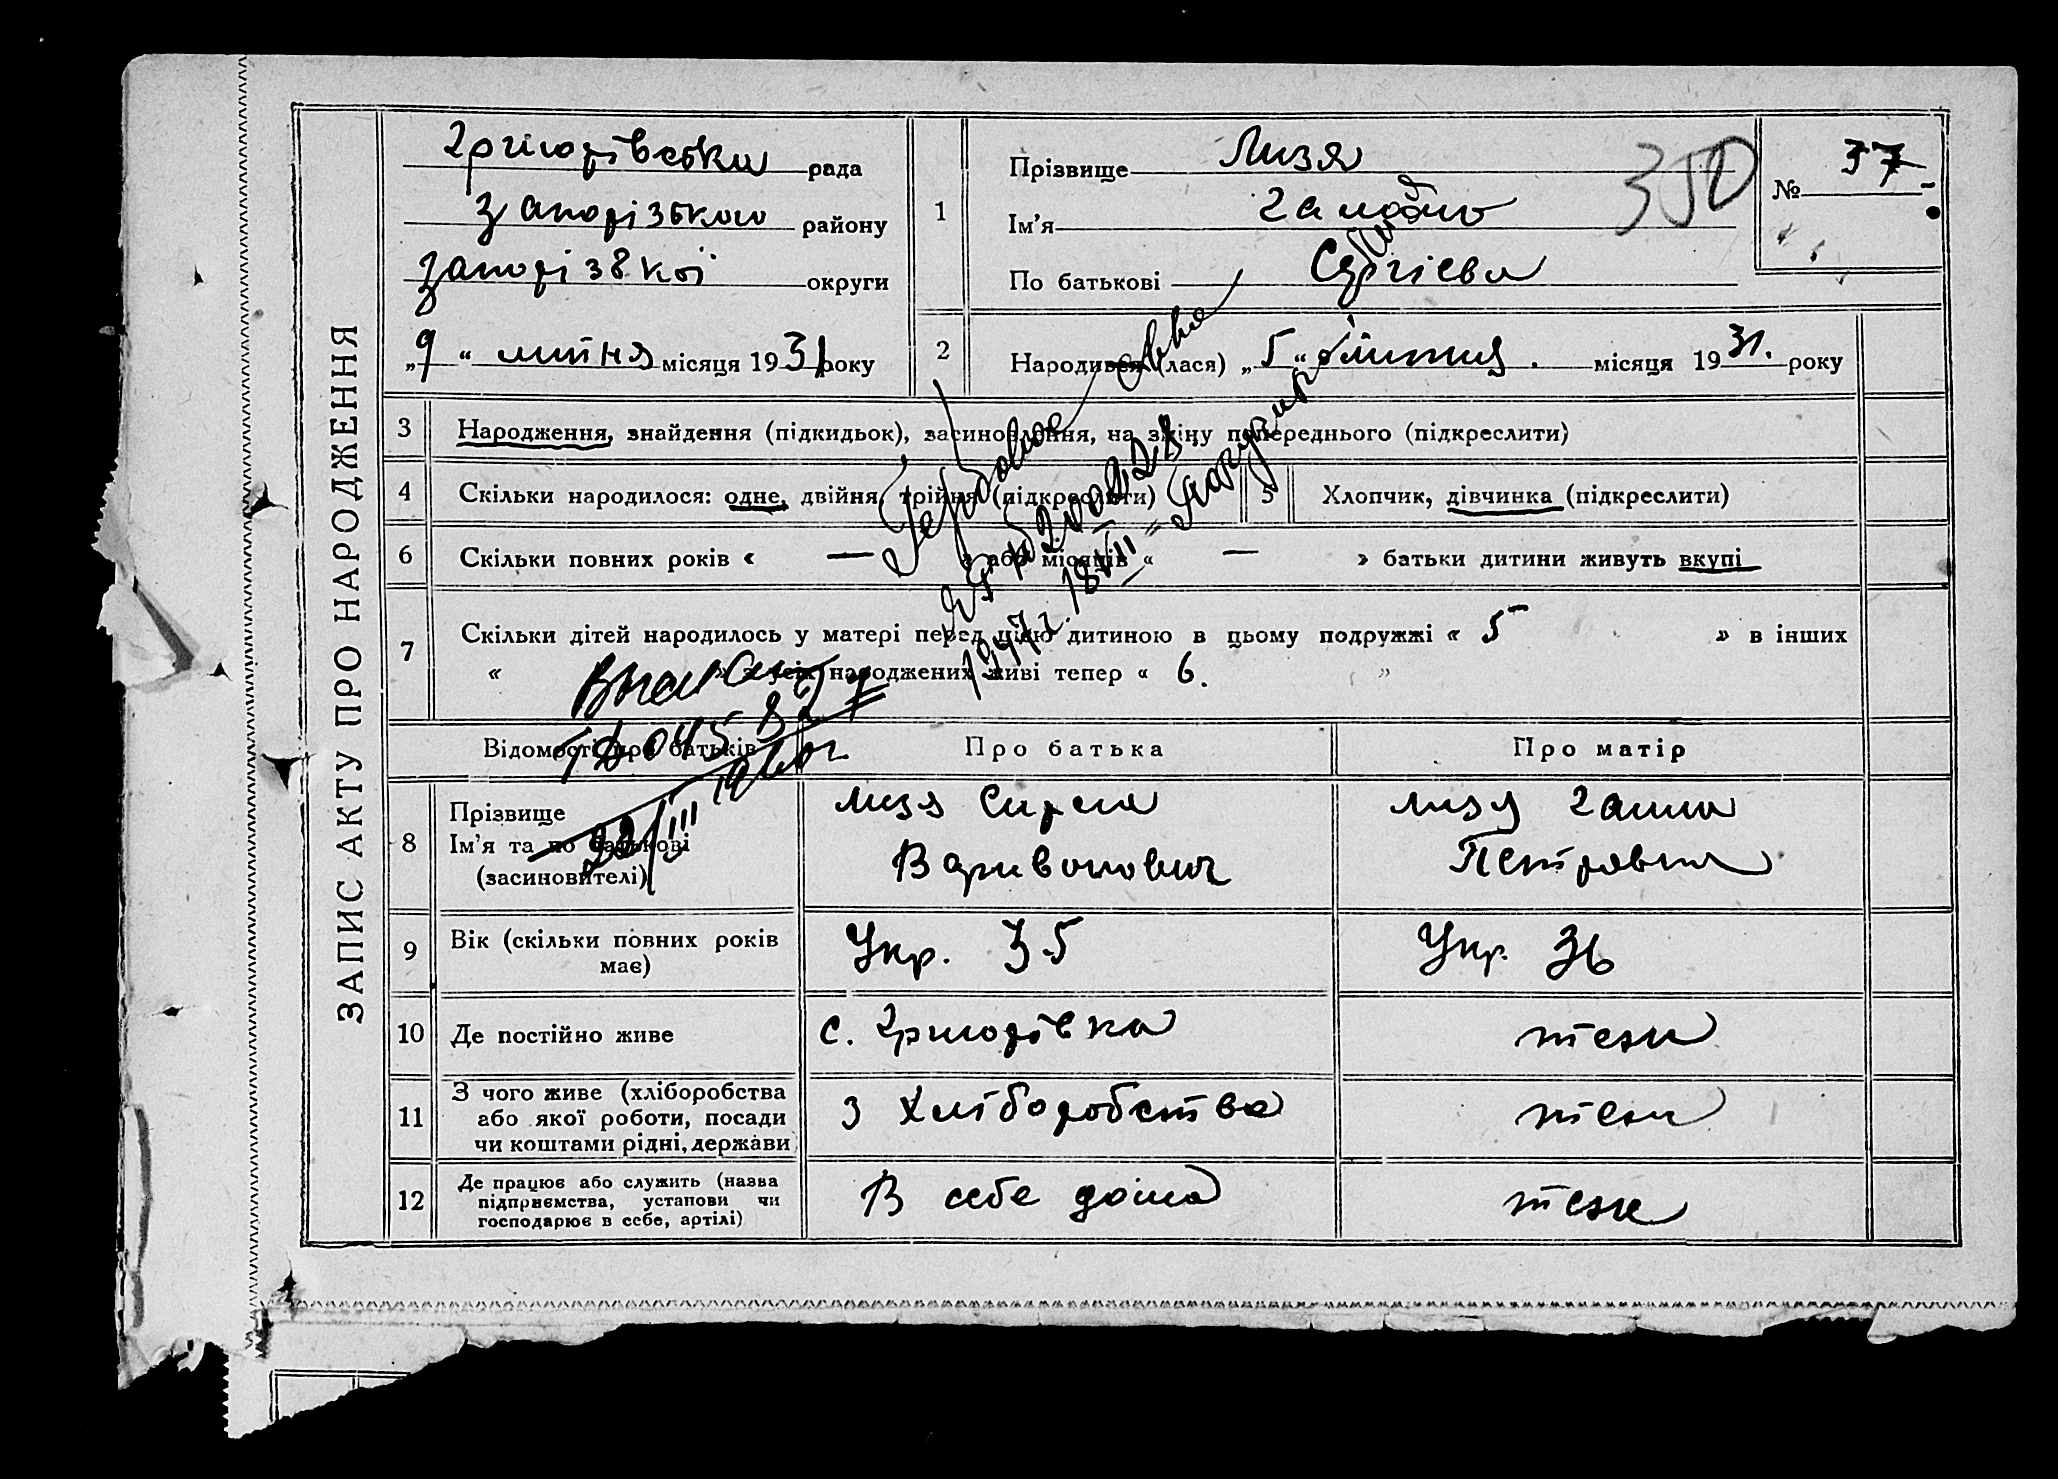 ЗАПИС АКТУ ПРО НАРОДЖЕННЯ
Григорівська рада
Запорізького району
Запорізької округи
„9“ лютня місяця 1931 року
1
Прізвище Лизя
Ім'я
По батькові Сергієва
350
№ 37
2
Народився (лася) „5“ лютня місяця 1931. року
3
Народження, знайдення (підкидьок), засиновлення, на зміну попереднього (підкреслити)
4
Скільки народилося: одне, двійня, трійня (підкреслити)
5
Хлопчик, дівчинка (підкреслити)
6
Скільки повних років « — » або місяців « — » батьки дитини живуть вкупі
7
Скільки дітей народилось у матері перед цією дитиною в цьому подружжі « 5 » в інших
« » з усіх народжених живі тепер « 6. »
Гербовое
1947 г. 18/VIII
22/III 1960г
Відомості про батьків
Про батька
Про матір
8
Прізвище
Ім'я та по батькові
(засиновителі)
Лизя Сергій
Варивонович
Лизя Ганна
Петровна
9
Вік (скільки повних років
має)
Укр. 35
Укр. 36
10
Де постійно живе
с. Григорівка
теж
11
З чого живе (хліборобства
або якої роботи, посади
чи коштами рідні, держави
З хліборобства
теж
12
Де працює або служить (назва
підприємства, установи чи
господарює в себе, артілі)
В себе дома
теж